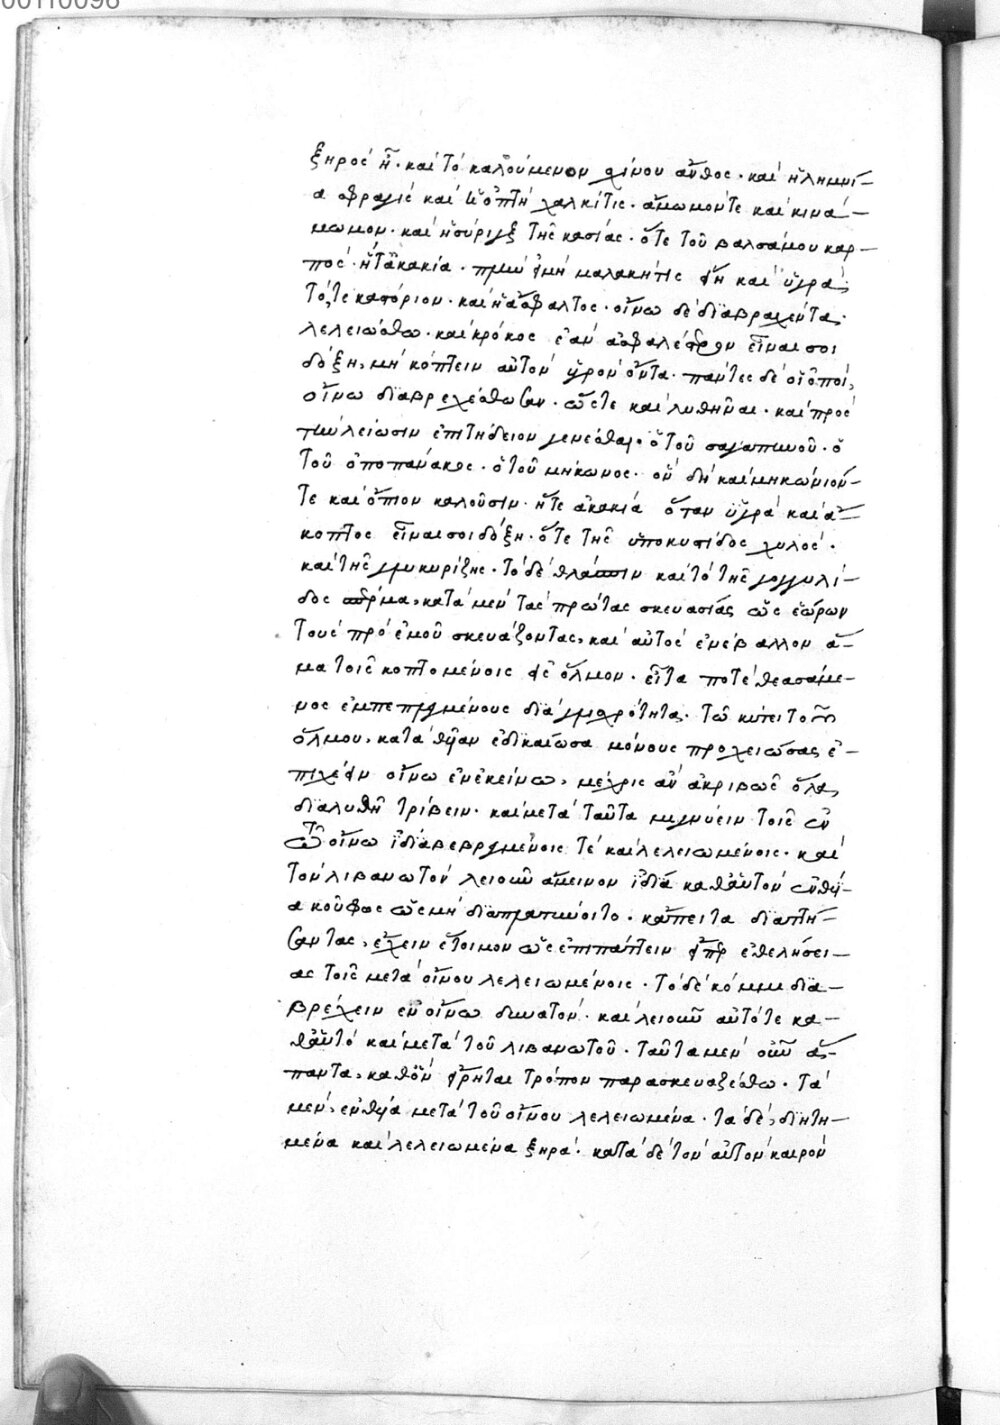 ξηρὸς ᾖ· καὶ τὸ καλούμενον σχίνου ἄνθος· καὶ ἡ λημνί-
α σφραγὶς καὶ ἡ ὀπτὴ χαλκίτις· ἄμωμόν τε καὶ κινά-
μωμον· καὶ ἡ σύριγξ τῆς κασίας· ὅτε τοῦ βαλσάμου καρ-
πός· ἥτ' ἀκακία· πρὶν μὴ μαλακή τις ἔτι καὶ ὑγρά·
τό, τε καστόριον· καὶ ἡ ἄσφαλτος· οἴνω δὲ διαβραχέντα,
λελειώσθω· καὶ κρόκος ἐὰν ἀσφαλέστερον εἶναι σοι
δόξη, μὴ κόπτειν αὐτὸν ὑγρὸν ὄντα· πάντες δὲ οἱ ὀποί,
οἴνω διαβρεχέσθωσαν· ὥστε καὶ λυθῆναι· καὶ πρὸς
τὴν λείωσιν ἐπιτήδειον γενέσθαι· ὅ τοῦ σαγαπηνοῦ· ὁ
τοῦ ὀποπάνακος· ὁ τοῦ μήκωνος· ὃν δὴ καὶ μηκώνιόν-
τε καὶ ὄπιον καλοῦσιν· ἥτε ἀκακία ὅταν ὑγρὰ καὶ ἄ-
κοπτος εἶναι σοι δόξη· ὅτε τῆς ὑποκυστίδος χυλός·
καὶ τῆς γλυκυρίζης· τὸ δὲ θλάσπιν καὶ τὸ τῆς γογγυλί-
δος σπέρμα, κατὰ μὲν τὰς πρώτας σκευασίας ὡς ἑώρων
τοὺς πρὸ ἐμοῦ σκευάζοντας, καὶ αὐτὸς ἐνέβαλλον ἅ-
μα τοῖς κοπτομένοις εἰς ὅλμον· εἶτα ποτὲ θεασάμε-
νος ἐμπεπλημένους διὰ γλισχρότητα, τῶ κύτει τοῦ
ὅλμου, κατὰ θυίαν ἐδικαίωσα μόνους προχειώσας ἐ-
πιχέειν οἴνω ἐν ἐκείνω, μέχρις ἂν ἀκριβῶς ὅλα,
διαλυθῆ τρίβειν· καὶ μετὰ ταῦτα μιγνύειν τοῖς ἐν
τῶ οἴνω ἰδία βεβρεγμένοις τὲ καὶ λελειωμένοις· καὶ
τὸν λιβανωτὸν λειοῦν ἄμεινον ἰδία καθ' αὑτὸν ἐν θυί-
α κούφως ὡς μὴ διαπλαττύοιτο· κἄπειτα διαττή-
σαντας, ἔχειν ἕτοιμον ὡς ἐπιπάττειν ὅπερ ἐθελήσει-
ας τοῖς μετὰ οἴνου λελειωμένοις· τὸ δὲ κόμμι δια-
βρέχειν ἐν οἴνω δυνατόν· καὶ λειοῦν αὐτό τε κα-
θ' αὑτὸ καὶ μετὰ τοῦ λιβανωτοῦ· ταῦτα μὲν οὖν ἅ-
παντα, καθ' ὃν εἴρηται τρόπον παρασκευαζέσθω· τὰ
μὲν, ἐν θυία μετὰ τοῦ οἴνου λελειωμένα· τὰ δὲ, διητη-
μένα καὶ λελειωμένα ξηρά· κατὰ δὲ τὸν αὐτὸν καιρὸν